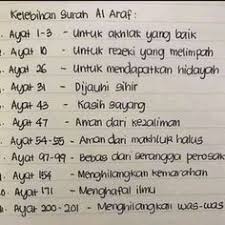 Kelebihan Surah Al Araf :
. Ayat 1-3 - Untuk akhlak yang baik
. Ayat 10 - Untuk rezeki yang melimpah
. Ayat 26 - Untuk mendapatkan hidayah
. Ayat 31 - Dijauhi sihir
. Ayat 43 - Kasih sayang
. Ayat 47 - Aman dari kezaliman
. Ayat 54-55 - Aman dari makhluk halus
. Ayat 97-99 - Bebas dari serangga perosak
. Ayat 154 - Menghilangkan kemarahan
. Ayat 171 - Menghafal ilmu
. Ayat 200-201 - Menghilangkan was-was